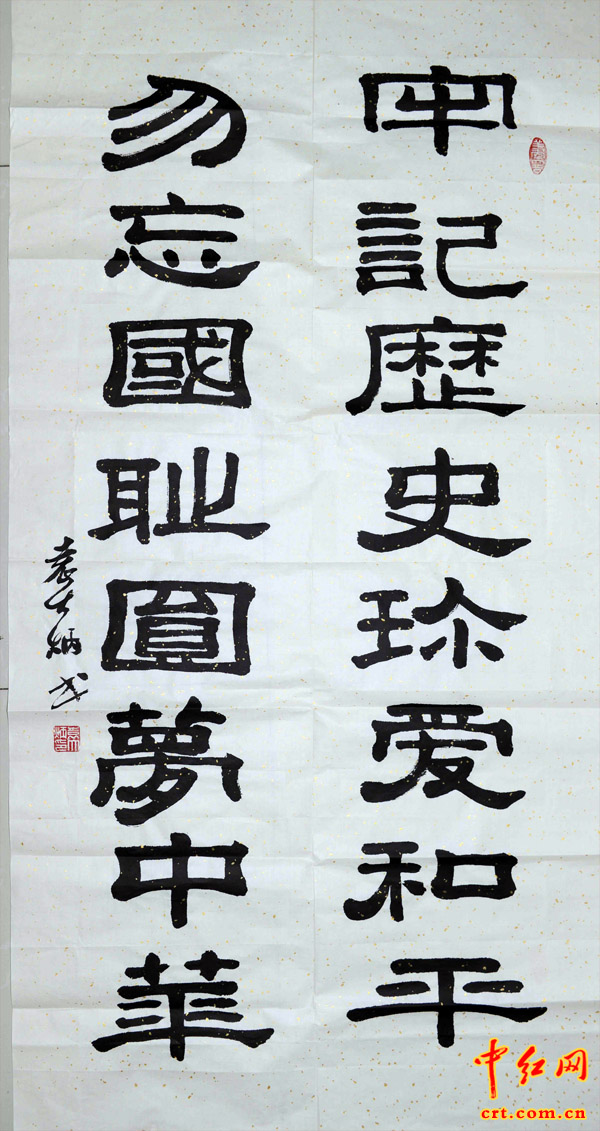 牢記歷史珎爱和平
勿忘國耻圓夢中華
袁大炳书
中红网
crt.com.cn